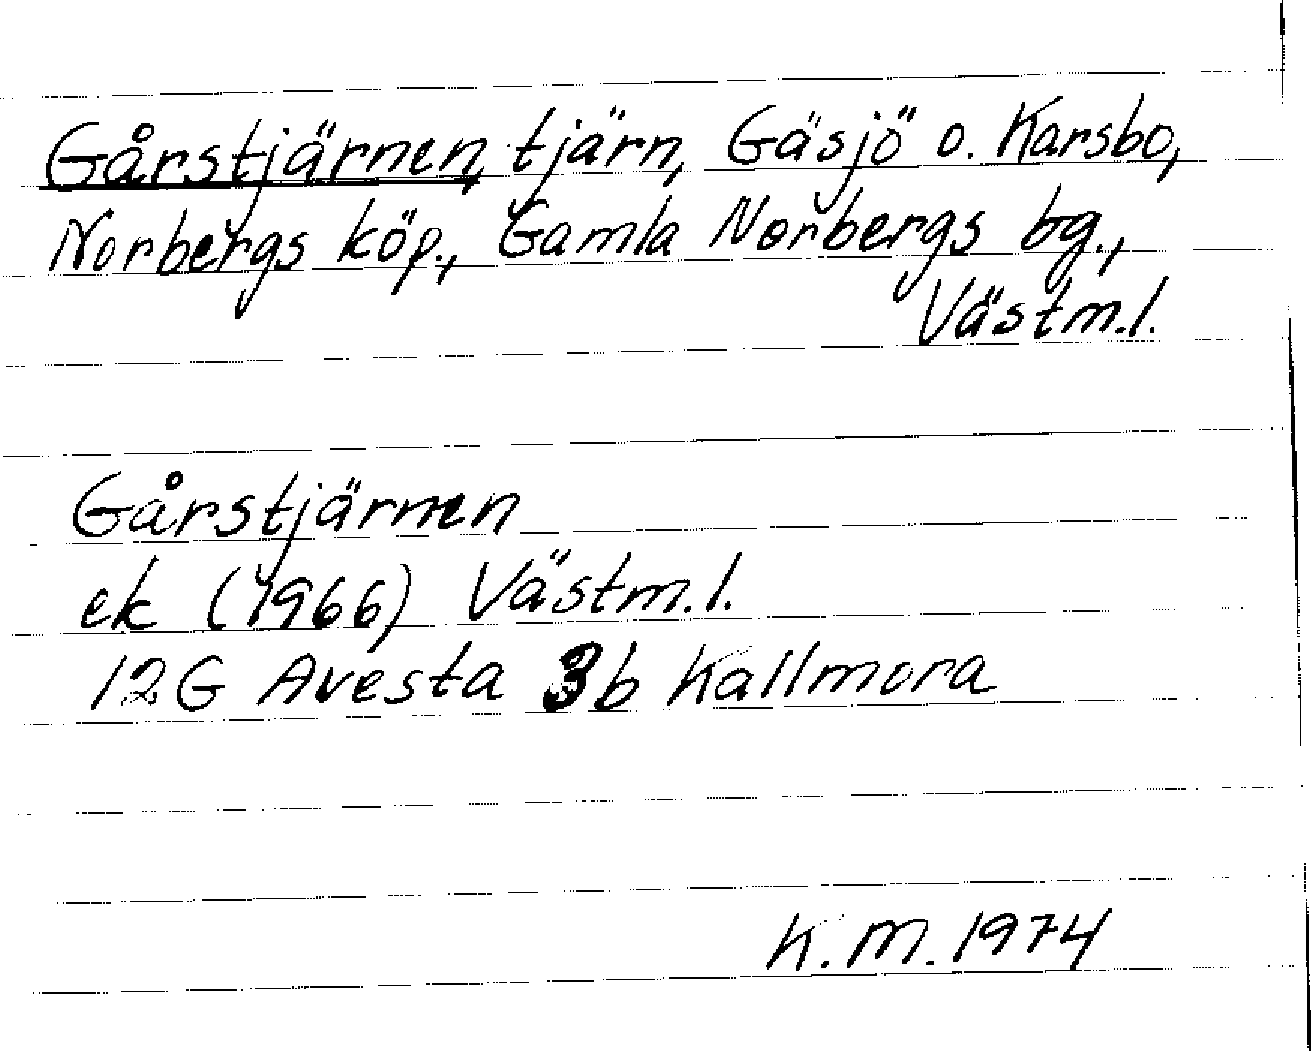 Gårstjärnen, tjärn, Gäsjö o. Karsbo,
Norbergs köp., Gamla Norbergs bg.,
Västm.l.
Gårstjärnen
ek (1966) Västm.l.
12G Avesta 3b Kallmora
K.M. 1974